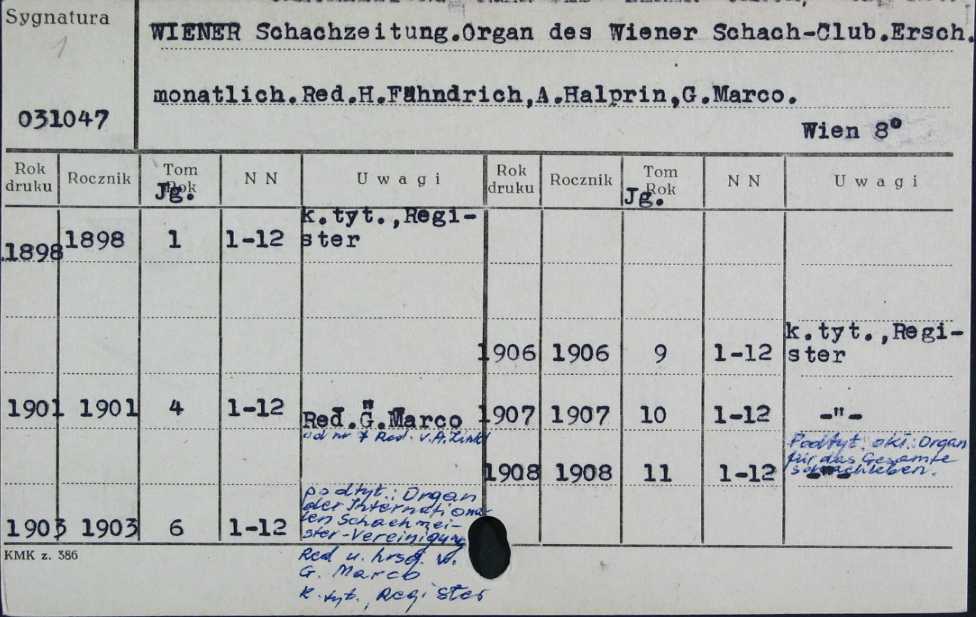 Sygnatura
1
031047
WIENER Schachzeitung.Organ des Wiener Schach-Club.Ersch.
monatlich.Red.H.Fähndrich,A.Halprin,G.Marco.
Wien 8°
Rok druku Rocznik Tom Rok Jg. N N Uwagi Rok druku Rocznik Tom Rok Jg. N N Uwagi
1898 1898 1 1-12 k.tyt.,Regi-
ster
1901 1901 4 1-12 "
Red.G.Marco
od nr Red. v.A.
1903 1903 6 1-12 podtyt.: Organ
der Internationa-
len Schachmei-
ster-Vereinigung
Red u. hrsg. v.
G. Marco
K.tyt., Register
1906 1906 9 1-12 k.tyt.,Regi-
ster
1907 1907 10 1-12 -"-
1908 1908 11 1-12 -"-
Podtyt. Organ
für das Gesamte
Schachleben.
KMK z. 386